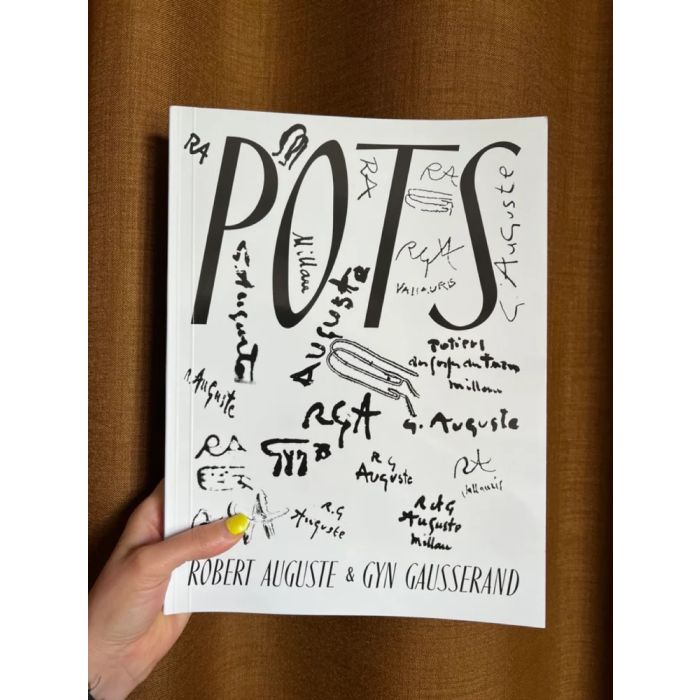 POTS
RA
RA
RA
G. Auguste
Millau
RGA
VALLAURIS
G. Auguste
Auguste
Potiers
Millau
R. Auguste
RGA
G. Auguste
RA
Gyn
R G
Auguste
RA
Vallauris
R.G
Auguste
R et G
Auguste
Millau
ROBERT AUGUSTE & GYN GAUSSERAND